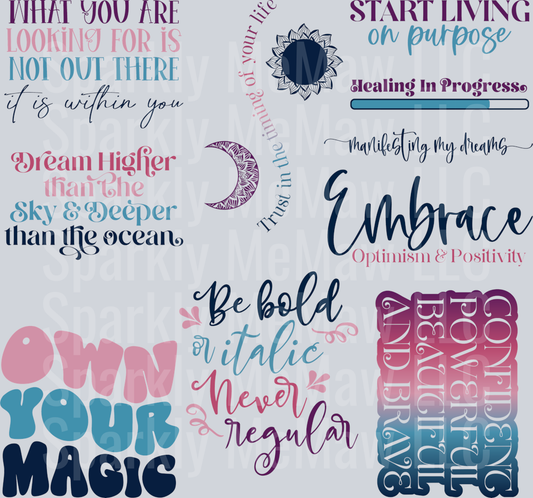 WHAT YOU ARE
LOOKING FOR IS
NOT OUT THERE
it is within you
Trust in the timing of your life
START LIVING
on purpose
Healing In Progress
manifesting my dreams
Dream Higher
than the
Sky & Deeper
than the ocean.
Embrace
Optimism & Positivity
OWN
YOUR
MAGIC
Be bold
or italic
Never
regular
CONFIDENT
POWERFUL
BEAUTIFUL
AND BRAVE
Sparkly MeMaw LLC
Sparkly MeMaw LLC
Sparkly MeMaw LLC
Sparkly MeMaw LLC
Sparkly MeMaw LLC
Sparkly MeMaw LLC